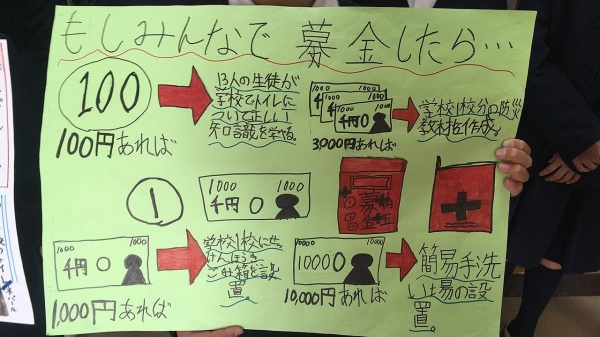 もしみんなで募金したら…
100
13人の生徒が
学校でトイレに
ついて正しい
知識を学べる。
100円あれば
1000
1000
千円
学校1校分の防災
教材を作成。
3,000円あれば
1
1000 1000
千円 0
募金
1000 1000
千円 0
学校1校にせ
っけん
ごみ箱を設
置。
1,000円あれば
10000 10000
10000
簡易手洗
い場の設
置。
10,000円あれば